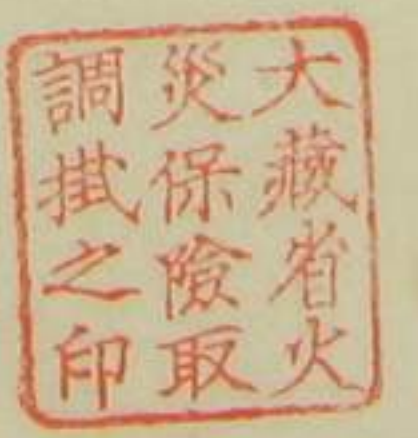 大藏省火
災保險取
調掛之印